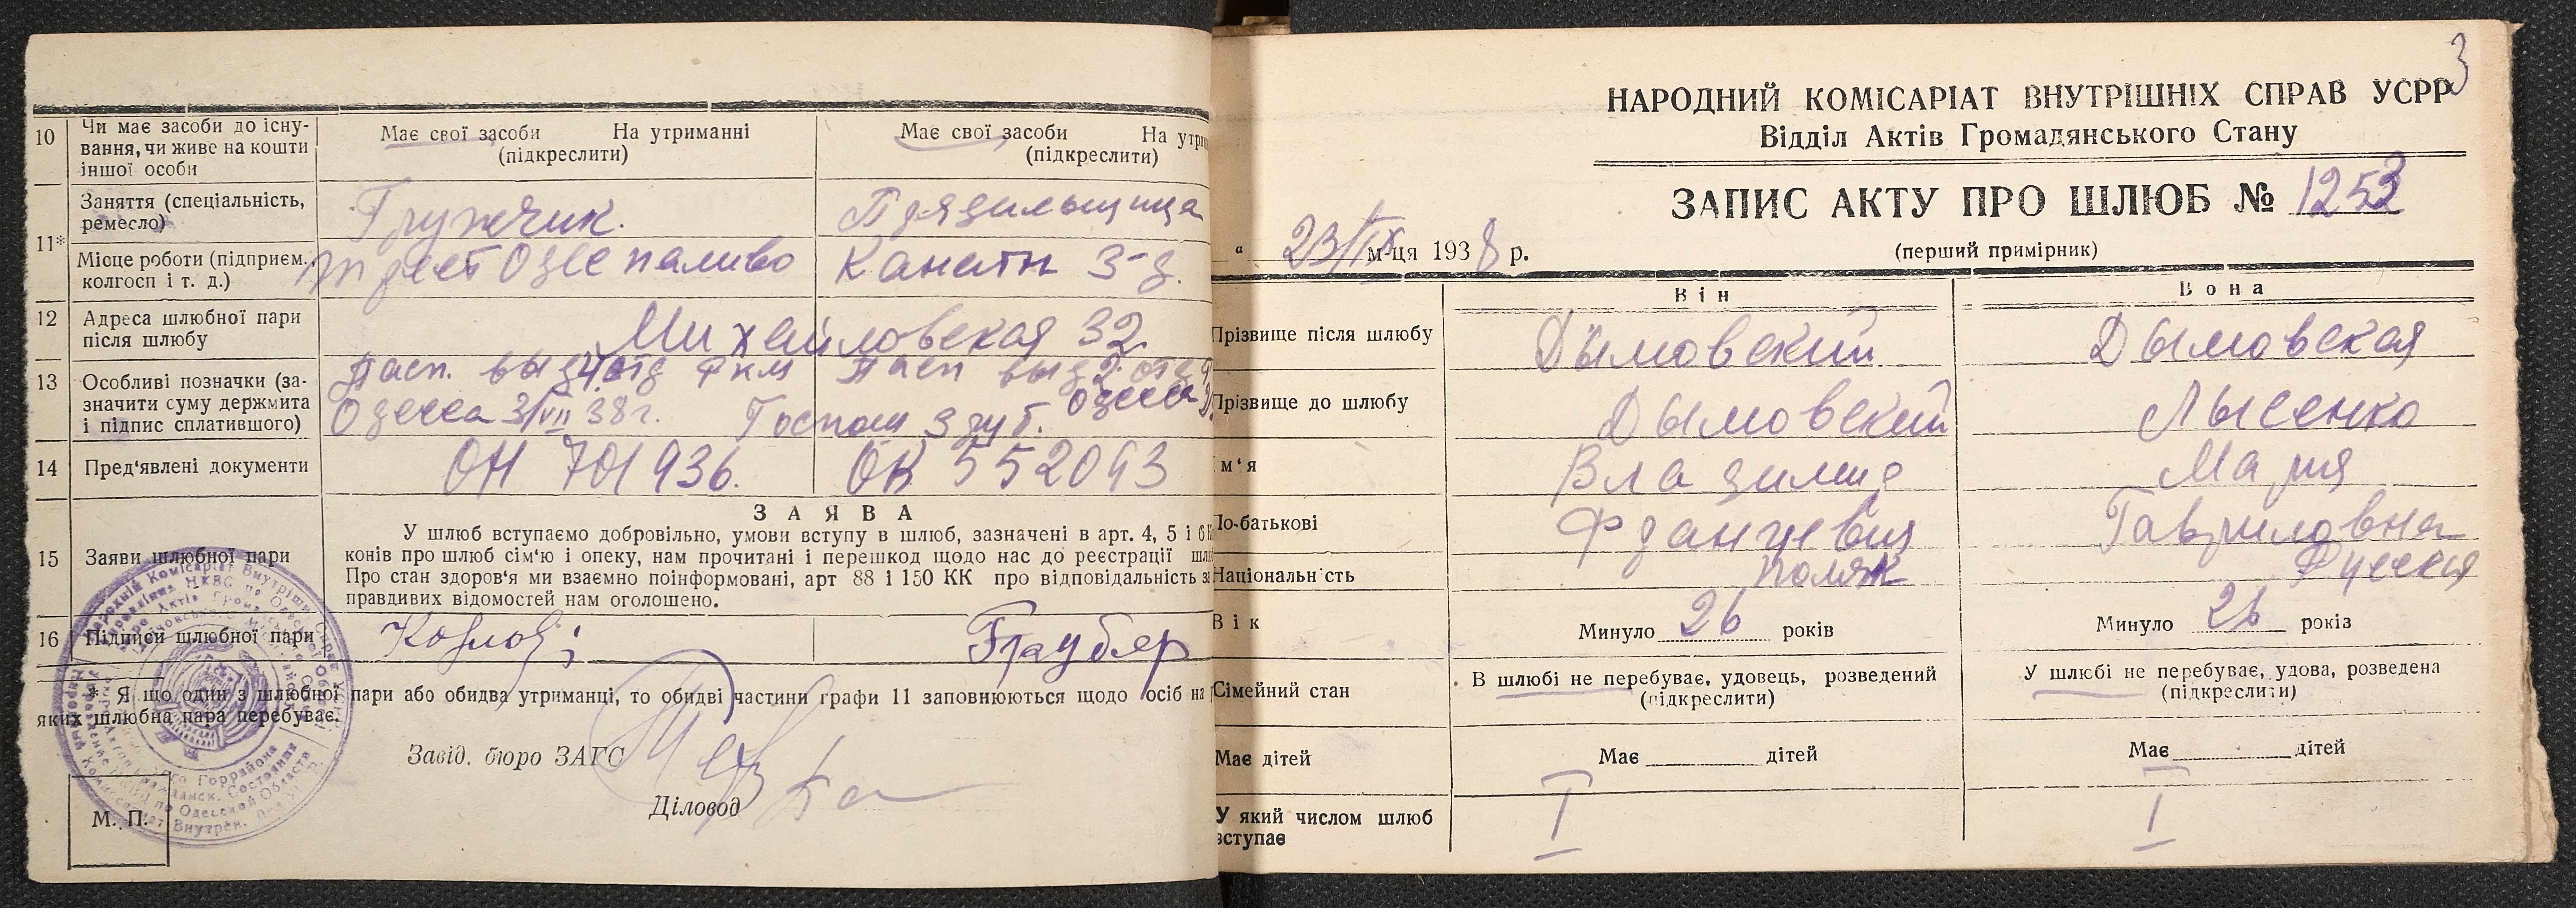 10
Чи має засоби до існу-
вання, чи живе на кошти
іншої особи
Має свої засоби На утриманні
(підкреслити)
Має свої засоби На утри
(підкреслити)
11*
Заняття (спеціальність,
ремесло)
Грузчик.
Прядильщица
Місце роботи (підприєм.,
колгосп і т. д.)
трест Одестопливо
Канатн з-д.
12
Адреса шлюбної пари
після шлюбу
Михайловская 32
13
Особливі позначки (за-
значити суму держмита
і підпис сплатившого)
Пасп. выд 4 отд РКМ
Одесса 3/VII 38г.
Пасп выд 2 отд
Одесса
Госпош 3 руб.
14
Пред'явлені документи
ОН 701936.
ОК 552093
15
Заяви шлюбної пари
ЗАЯВА
У шлюб вступаємо добровільно, умови вступу в шлюб, зазначені в арт. 4, 5 і 6
конів про шлюб сім'ю і опеку, нам прочитані і перешкод щодо нас до реєстрації шл
Про стан здоров'я ми взаємно поінформовані, арт 88 і 150 КК про відповідальність за
правдивих відомостей нам оголошено.
16
Підписи шлюбної пари
* Я що один з шлюбної пари або обидва утриманці, то обидві частини графи 11 заповнюються щодо осіб на
яких шлюбна пара перебуває.
Завід. бюро ЗАГС
Діловод
М. П.
3
НАРОДНИЙ КОМІСАРІАТ ВНУТРІШНІХ СПРАВ УСРР
Відділ Актів Громадянського Стану
ЗАПИС АКТУ ПРО ШЛЮБ № 1253
(перший примірник)
" 23/IX м-ця 1938 р.
Він
Вона
Прізвище після шлюбу
Дымовский
Дымовская
Прізвище до шлюбу
Дымовский
Лысенко
м'я
Владимир
Мария
По-батькові
Францевич
Гавриловна
Національність
поляк
Русская
Вік
Минуло 26 років
Минуло 26 років
Сімейний стан
В шлюбі не перебуває, удовець, розведений
(підкреслити)
У шлюбі не перебуває, удова, розведена
(підкреслити)
Має дітей
Має дітей
Має дітей
У який числом шлюб
вступає
I
I